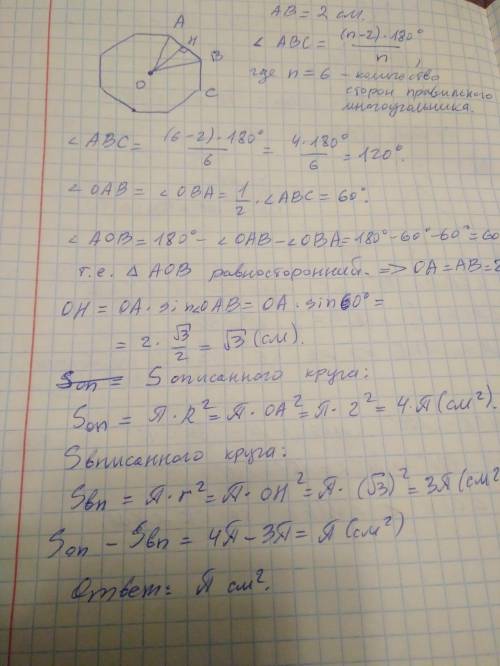 A
H
B
O
C
AB = 2 см.
∠ ABC = (n-2)·180° / n ,
где n = 6 - количество
сторон правильного
многоугольника.
∠ABC = (6-2)·180° / 6 = 4·180° / 6 = 120°.
∠OAB = ∠OBA = 1/2 · ∠ABC = 60°.
∠AOB = 180° - ∠OAB - ∠OBA = 180° - 60° - 60° = 60
т.е. △ AOB равносторонний. => OA = AB = 2
OH = OA · sin∠OAB = OA · sin60° =
= 2 · √3/2 = √3 (см).
Sоп = S описанного круга:
Sоп = π · R² = π · OA² = π · 2² = 4·π (см²).
Sвписанного круга:
Sвп = π · r² = π · OH² = π · (√3)² = 3π (см²
Sоп - Sвп = 4π - 3π = π (см²)
Ответ: π см².